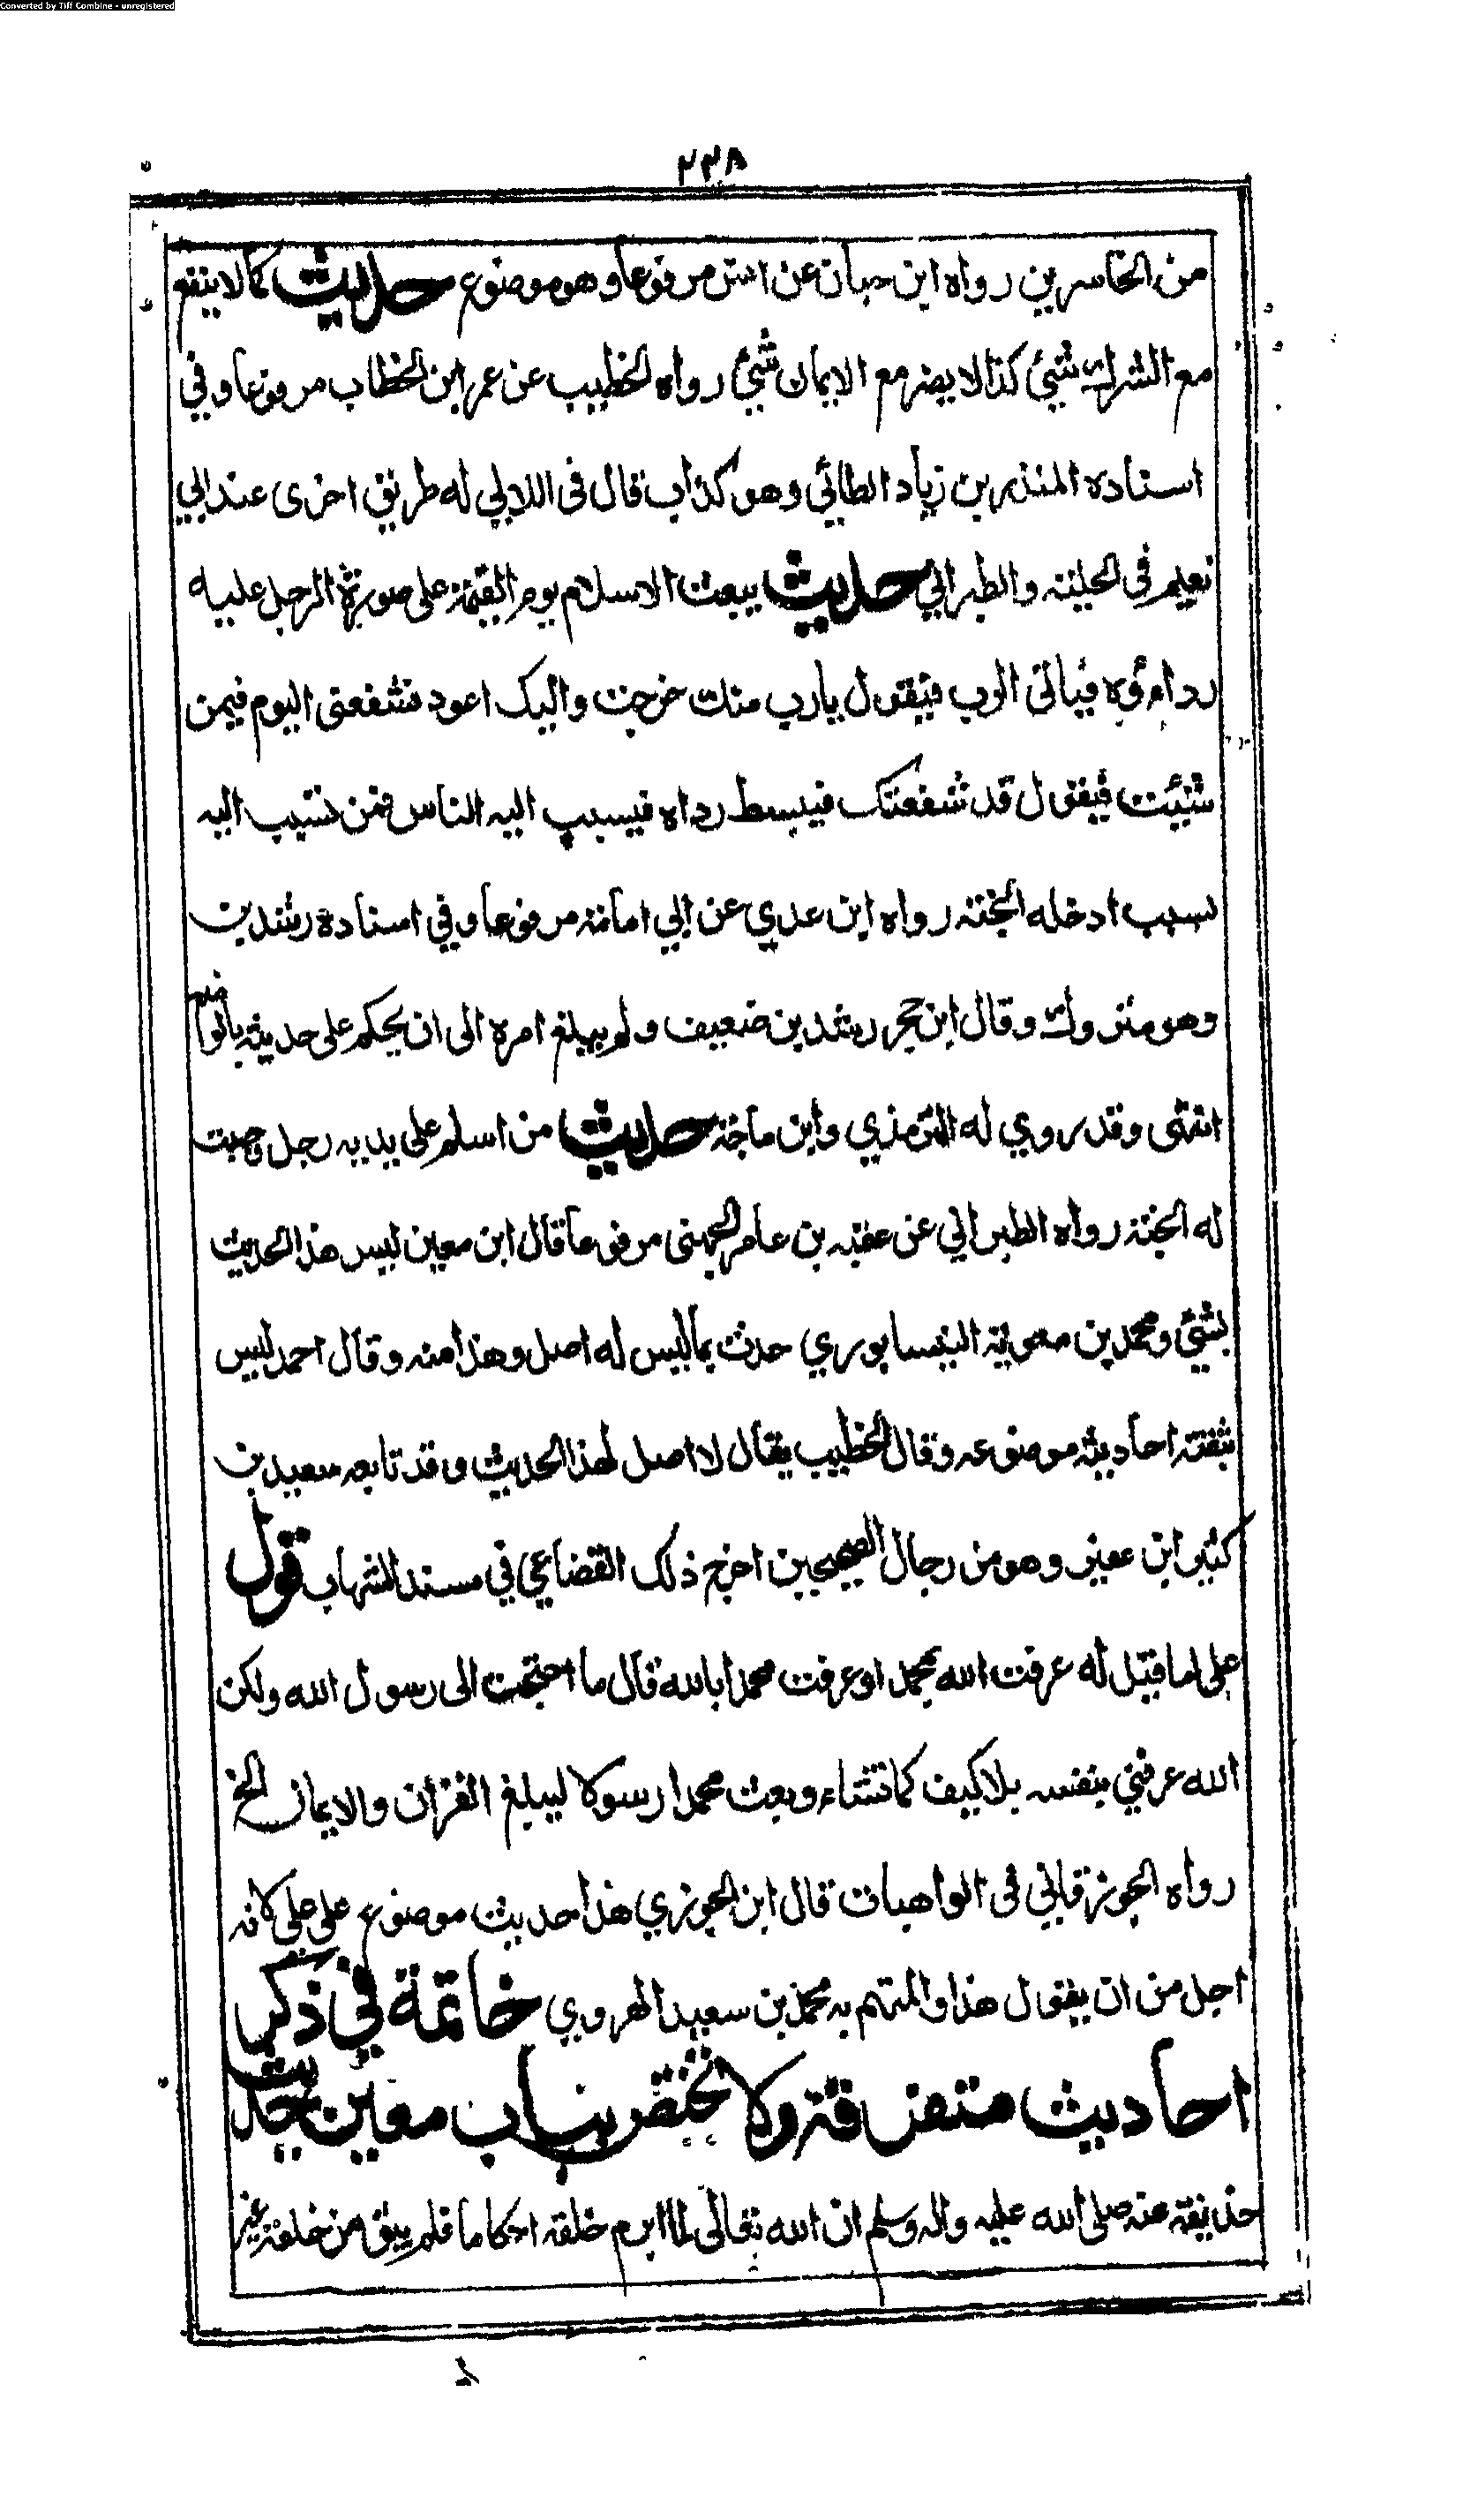 Converted by Tiff Combine - unregistered
٢٣٨
من الخاسرين رواه ابن حبان عن انس مرفوعا وهو موضوع حديث كما لا ينفع
مع الشرك شيئ كذا لا يضر مع الايمان شيئ رواه الخطيب عن عمر ابن الخطاب مرفوعا وفي
اسناده المنذر بن زياد الطائي وهو كذاب قال فى اللالي له طريق اخرى عند ابي
نعيم فى الحلية والطبراني حديث يبعث الاسلام يوم القيمة على صورة الرجل عليه
رداءوه فياتى الرب فيقول يارب منك خرجت واليك اعود فشفعنى اليوم فيمن
شئيت فيقول قد شفعتك فيبسط رداه فيسبب اليه الناس فمن تسبب اليه
بسبب ادخله الجنة رواه ابن عدي عن ابي امامة مرفوعا وفي اسناده رشدين
وهو متروك وقال ابن حجر رشدين ضعيف ولم يبلغ امره الى ان يحكم على حديثه بالوضع
انتهى وقد روي له الترمذي وابن ماجة حديث من اسلم على يديه رجل وجبت
له الجنة رواه الطبراني عن عقبه بن عامر الجهنى مرفوعا قال ابن معين ليس هذا الحديث
بشيئ ومحمد بن معوية النيسابوري حدث بما ليس له اصل وهذا منه وقال احمد ليس
بثقة احاديثه موضوعه وقال الخطيب يقال لا اصل لهذا الحديث وقد تابعه سعيد بن
كثير ابن عفير وهو من رجال الصحيحين اخرج ذلك القضاعي في مسند الشهاب قول
على لما قيل له عرفت الله بمحمد او عرفت محمدا بالله قال ما احتجت الى رسول الله ولكن
الله عرفني بنفسه بلا كيف كما شاء وبعث محمدا رسولا ليبلغ القرآن والايمان الخ
رواه الجوزقاني فى الواهيات قال ابن الجوزي هذا حديث موضوع على على لانه
اجل من ان يقول هذا والمتهم به محمد بن سعيد الهروي خاتمة في ذكر
احاديث متفرقة ولا تختص بباب معين حديث
حذيفة عنه صلى الله عليه واله وسلم ان الله تعالى لما ابرم خلقه احكاما فلم يبق من خلقه غير